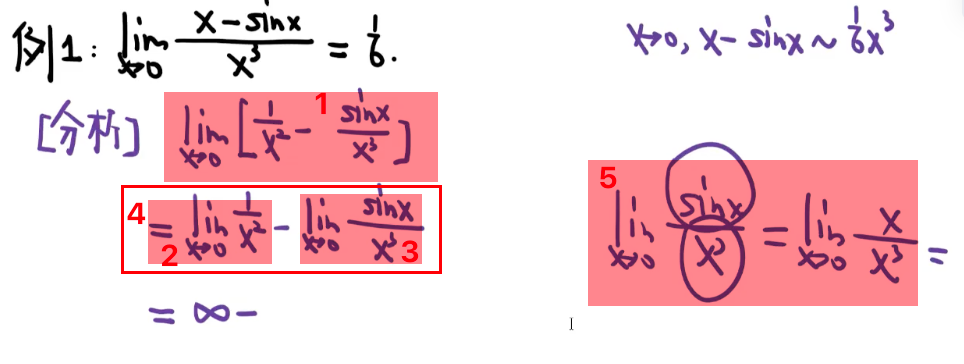 例1: lim x→0 (x-sinx)/x³ = 1/6.
x→0, x-sinx ~ 1/6 x³
[分析] lim x→0 [1/x² - sinx/x³]
1
= lim x→0 1/x² - lim x→0 sinx/x³
4
2
3
= ∞ -
5
lim x→0 sinx/x³ = lim x→0 x/x³ =